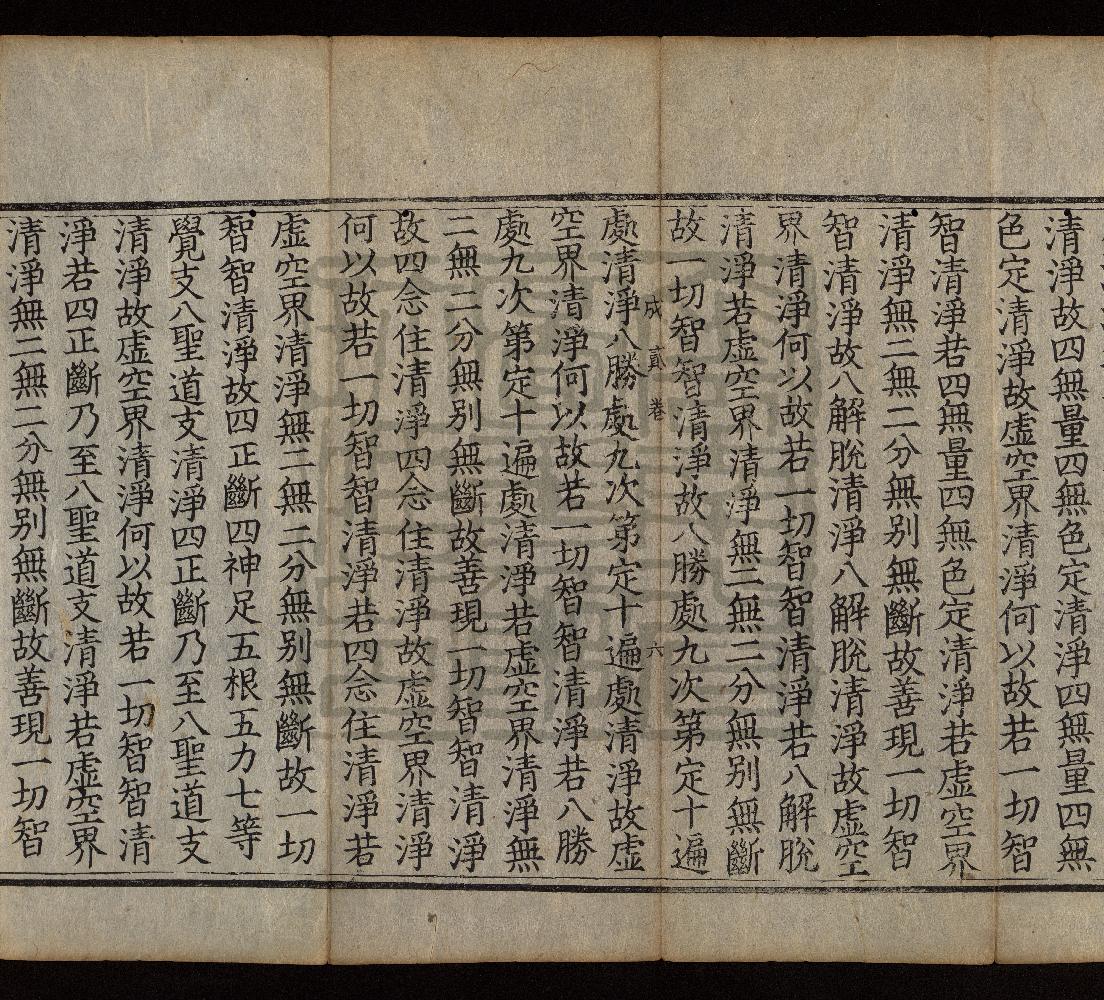 清淨故四無量四無色定清淨四無量四無
色定清淨故虛空界清淨何以故若一切智
智清淨若四無量四無色定清淨若虛空界
清淨無二無二分無別無斷故善現一切智
智清淨故八解脫清淨八解脫清淨故虛空
界清淨何以故若一切智智清淨若八解脫
清淨若虛空界清淨無二無二分無別無斷
故一切智智清淨故八勝處九次第定十遍
成 貳卷 六
處清淨八勝處九次第定十遍處清淨故虛
空界清淨何以故若一切智智清淨若八勝
處九次第定十遍處清淨若虛空界清淨無
二無二分無別無斷故善現一切智智清淨
故四念住清淨四念住清淨故虛空界清淨
何以故若一切智智清淨若四念住清淨若
虛空界清淨無二無二分無別無斷故一切
智智清淨故四正斷四神足五根五力七等
覺支八聖道支清淨四正斷乃至八聖道支
清淨故虛空界清淨何以故若一切智智清
淨若四正斷乃至八聖道支清淨若虛空界
清淨無二無二分無別無斷故善現一切智